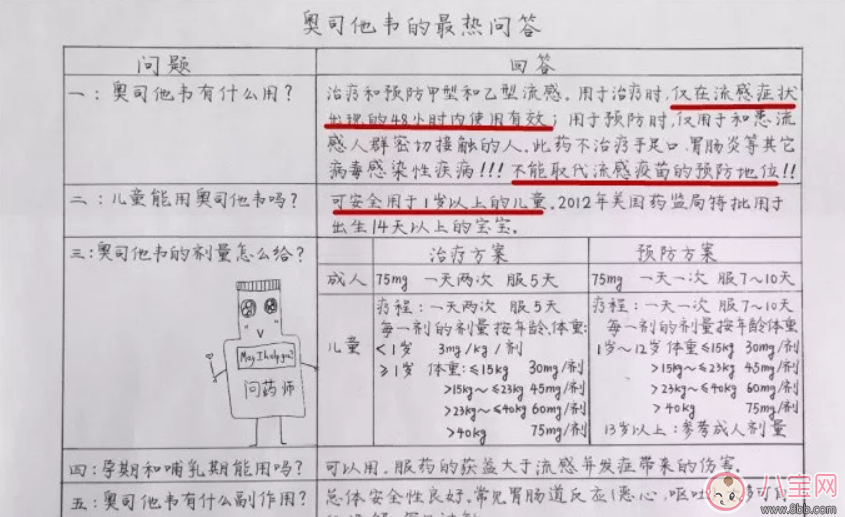 奥司他韦的最热问答
问题 回答
一：奥司他韦有什么用？
治疗和预防甲型和乙型流感。用于治疗时，仅在流感症状
出现的48小时内使用有效；用于预防时，仅用于和患流
感人群密切接触的人。此药不治疗手足口、胃肠炎等其它
病毒感染性疾病!!! 不能取代流感疫苗的预防地位!!
二：儿童能用奥司他韦吗？
可安全用于1岁以上的儿童。2012年美国药监局特批用于
出生14天以上的宝宝。
三：奥司他韦的剂量怎么给？
治疗方案 预防方案
成人 75mg 一天两次 服5天 75mg 一天一次 服7~10天
儿童
疗程：一天两次 服5天
每一剂的剂量按年龄、体重：
<1岁 3mg/kg/剂
≥1岁 体重:≤15kg 30mg/剂
>15kg~≤23kg 45mg/剂
>23kg~≤40kg 60mg/剂
>40kg 75mg/剂
疗程：一天一次 服7~10天
每一剂的剂量按年龄体重
1岁~12岁 体重≤15kg 30mg/剂
>15kg~≤23kg 45mg/剂
>23kg~≤40kg 60mg/剂
>40kg 75mg/剂
13岁以上：参考成人剂量
May I help you
问药师
四：孕期和哺乳期能用吗？
可以用。服药的获益大于流感并发症带来的伤害。
五：奥司他韦有什么副作用？
总体安全性良好。常见胃肠道反应（恶心，呕吐
八宝网
www.8bb.com